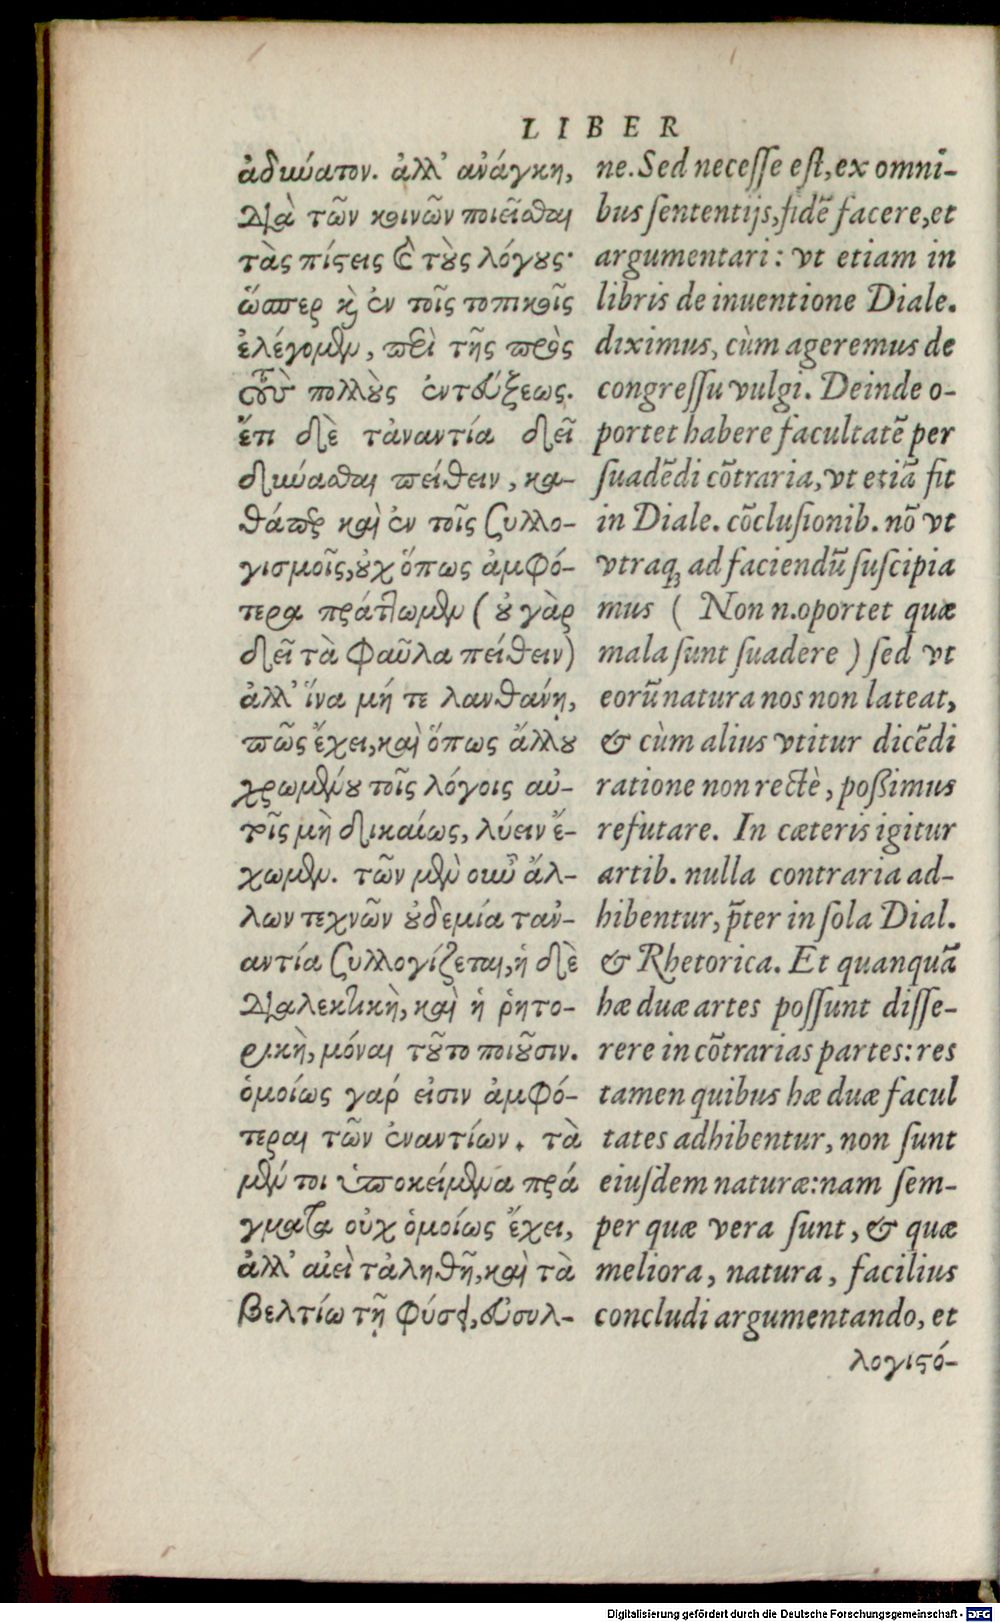 LIBER
ἀδιώατον. ἀλλ' ἀνάγκη,
διὰ τῶν κοινῶν ποιεῖσθαι
τὰς πίστεις ἢ τοὺς λόγους·
ὥσπερ κὶ ἐν τοῖς τοπικοῖς
ἐλέγομεν, περὶ τῆς πρὸς
τοὺς πολλοὺς ἐντεύξεως.
ἔτι δὲ τἀναντία δεῖ
δύνασθαι πείθειν, κα-
θάπερ καὶ ἐν τοῖς συλλο-
γισμοῖς, οὐχ ὅπως ἀμφό-
τερα πράττωμεν (οὐ γὰρ
δεῖ τὰ φαῦλα πείθειν)
ἀλλ' ἵνα μή τε λανθάνῃ,
πῶς ἔχει, καὶ ὅπως ἄλλου
χρωμένου τοῖς λόγοις αὐ-
τοῖς μὴ δικαίως, λύειν ἔ-
χωμεν. τῶν μὲν οὖν ἄλ-
λων τεχνῶν οὐδεμία ταν-
αντία συλλογίζεται, ἡ δὲ
διαλεκτικὴ, καὶ ἡ ῥητο-
ρικὴ, μόναι τοῦτο ποιοῦσιν.
ὁμοίως γάρ εἰσιν ἀμφό-
τεραι τῶν ἐναντίων. τὰ
μέν τοι ὑποκείμενα πρά
γματα οὐχ ὁμοίως ἔχει,
ἀλλ' αἰεὶ τἀληθῆ, καὶ τὰ
βελτίω τῇ φύσει, εὐσυλ-
ne. Sed necesse est, ex omni-
bus sententijs, fidẽ facere, et
argumentari: vt etiam in
libris de inuentione Diale.
diximus, cùm ageremus de
congressu vulgi. Deinde o-
portet habere facultatẽ per
suadẽdi cõtraria, vt etiã fit
in Diale. cõclusionib. nõ vt
vtraq; ad faciendũ suscipia
mus ( Non n. oportet quæ
mala sunt suadere ) sed vt
eorũ natura nos non lateat,
& cùm alius vtitur dicẽdi
ratione non rectè, possimus
refutare. In cæteris igitur
artib. nulla contraria ad-
hibentur, p̃ter in sola Dial.
& Rhetorica. Et quanquã
hæ duæ artes possunt disse-
rere in cõtrarias partes: res
tamen quibus hæ duæ facul
tates adhibentur, non sunt
eiusdem naturæ: nam sem-
per quæ vera sunt, & quæ
meliora, natura, facilius
concludi argumentando, et
λογιστό-
Digitalisierung gefördert durch die Deutsche Forschungsgemeinschaft - DFG